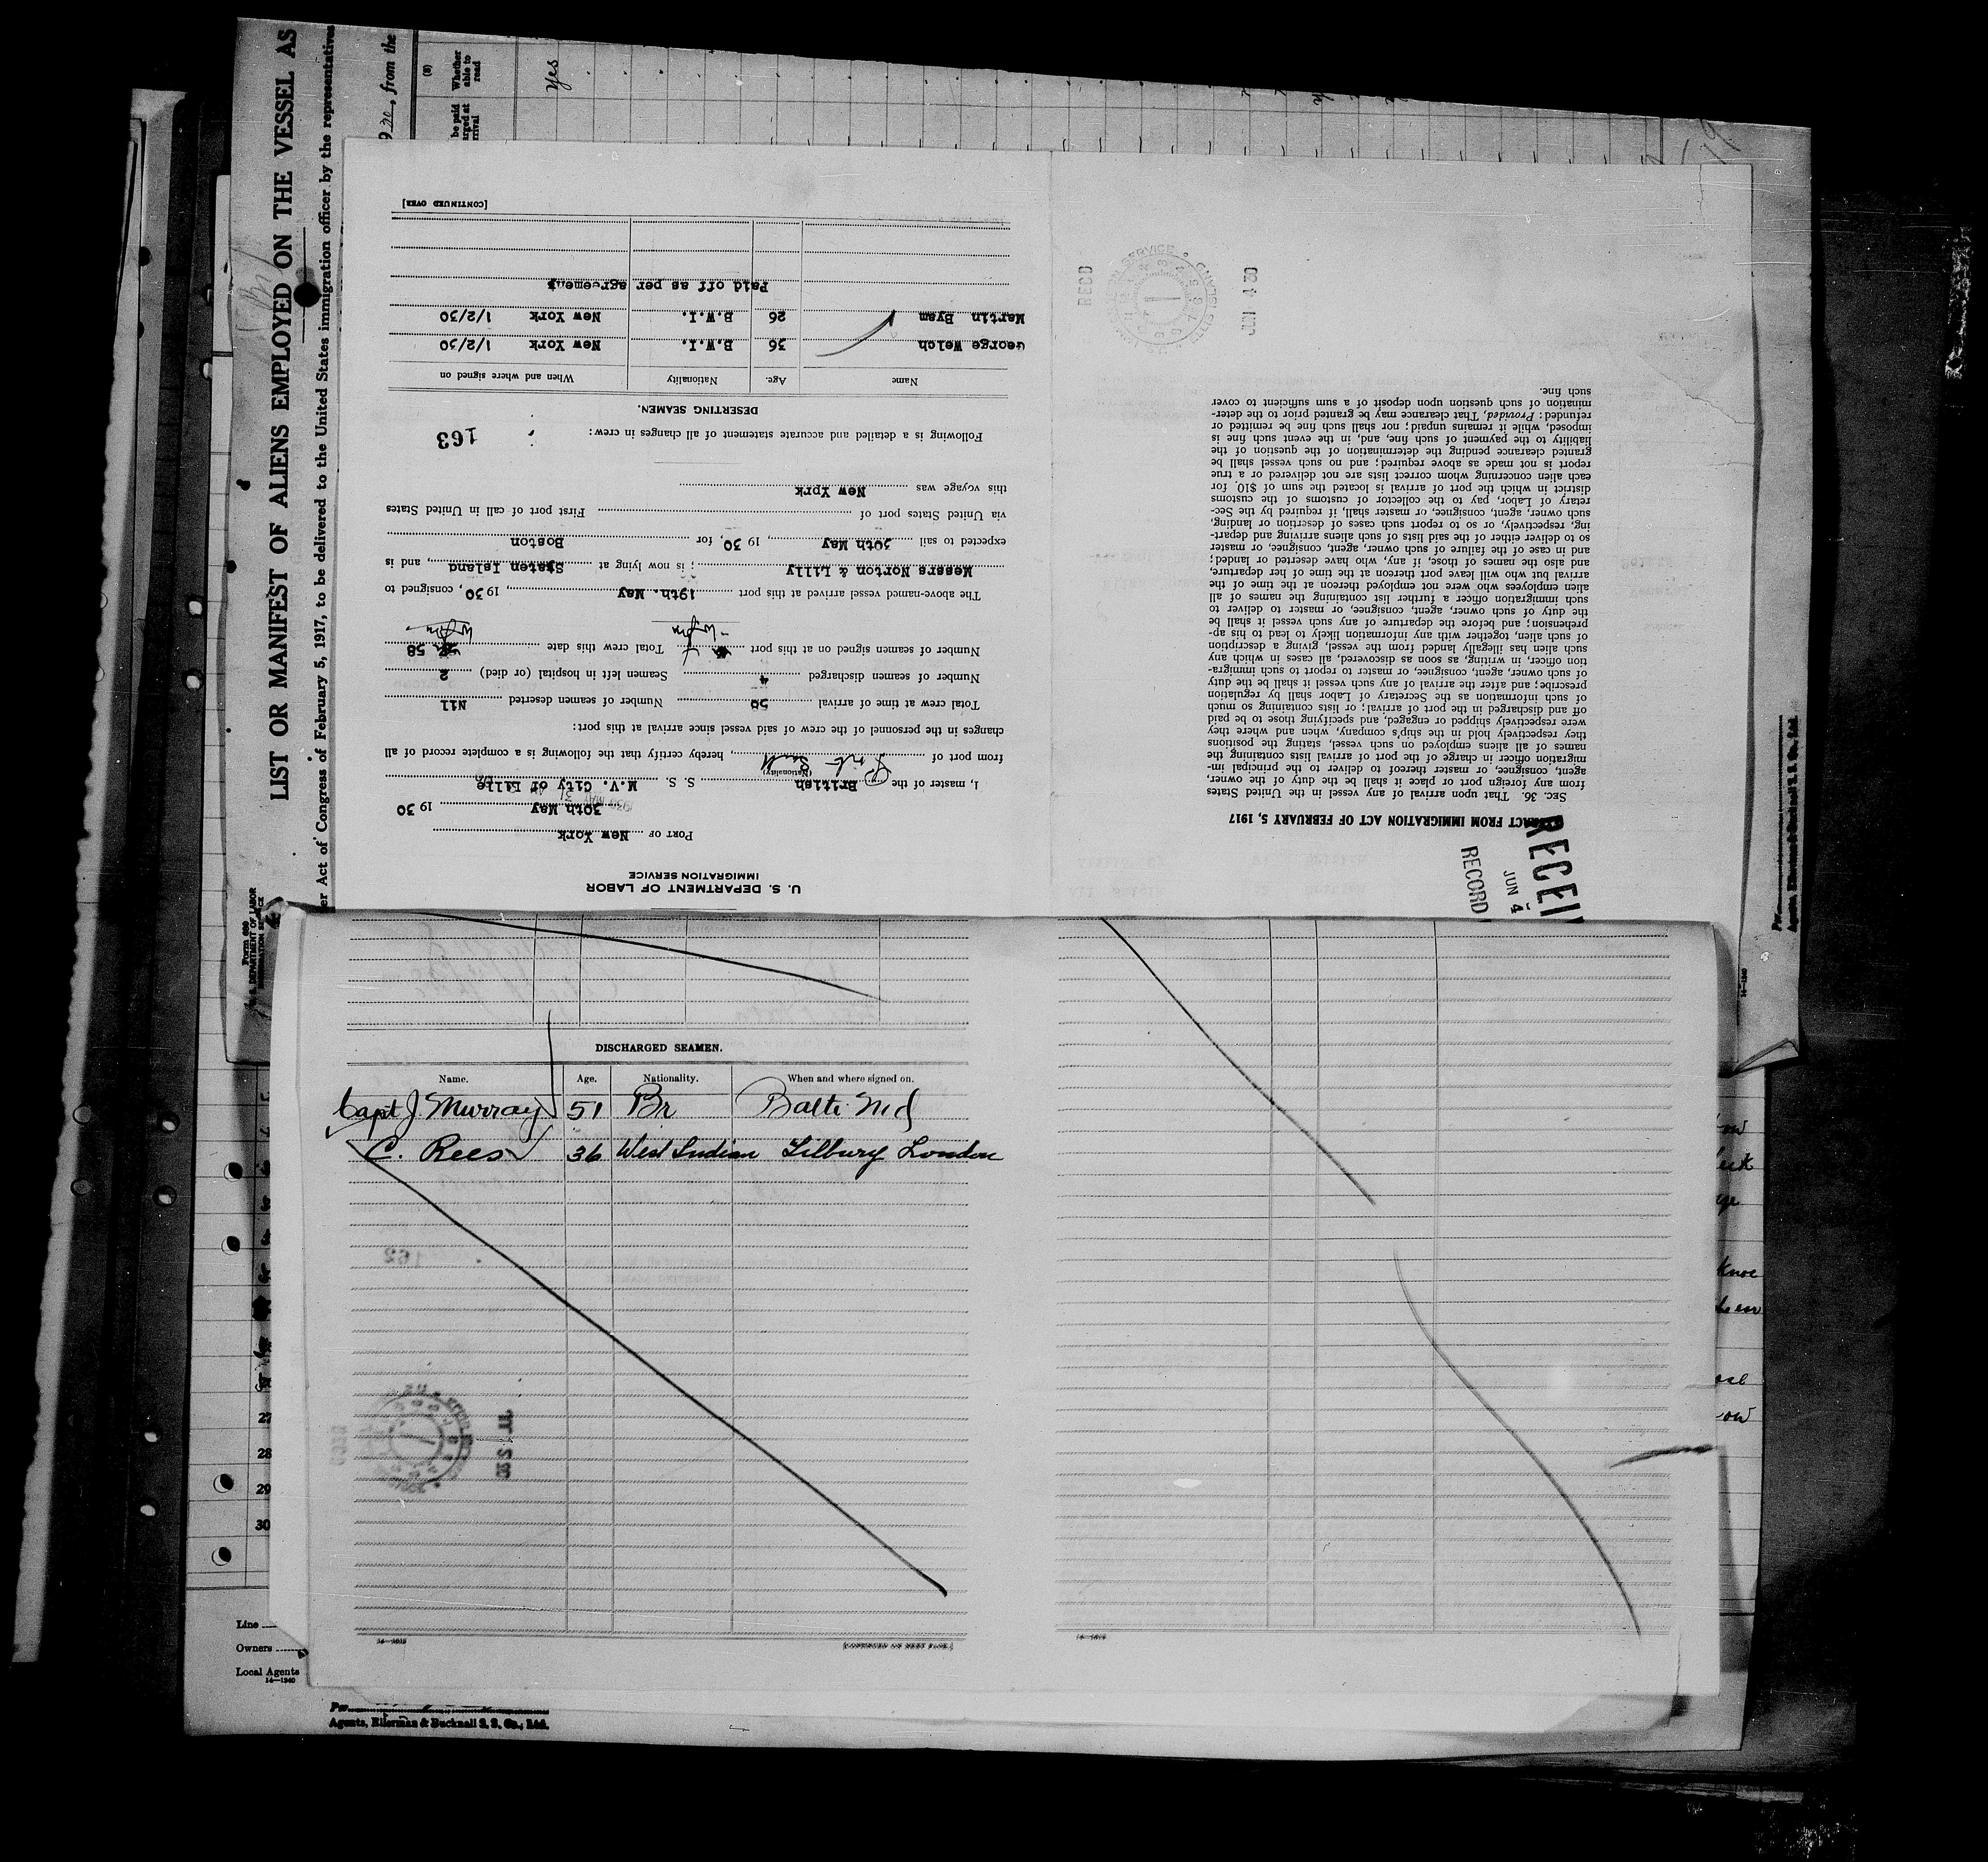 LIST OR MANIFEST OF ALIENS EMPLOYED ON THE VESSEL AS
Act of Congress of February 5, 1917, to be delivered to the United States immigration officer by the representatives
, from the
(8)
Whether able to read
Yes
Form 680
U. S. DEPARTMENT OF LABOR
IMMIGRATION SERVICE
U. S. DEPARTMENT OF LABOR
IMMIGRATION SERVICE
PORT OF New York
30th May 1930
I, master of the British S. S. M.V. City of Lille
(Nationality)
from port of , hereby certify that the following is a complete record of all
changes in the personnel of the crew of said vessel since arrival at this port:
Total crew at time of arrival Number of seamen deserted Nil
Number of seamen discharged 4 Seamen left in hospital (or died) 2
Number of seamen signed on at this port Total crew this date 58
The above-named vessel arrived at this port 19th. May, 1930, consigned to
Messrs Norton & Lilly; is now lying at Staten Island, and is
expected to sail 30th May, 1930, for Boston
via United States port of First port of call in United States
this voyage was New York
Following is a detailed and accurate statement of all changes in crew:
163
DESERTING SEAMEN.
Name Age. Nationality When and where signed on
George Welch 36 B.W.I. New York 1/2/30
Martin Ryan 26 B.W.I. New York 1/2/30
Paid off as per agreement
[CONTINUED OVER]
RECEI
RECORD
JUN 4
ACT FROM IMMIGRATION ACT OF FEBRUARY 5, 1917
SEC. 36. That upon arrival of any vessel in the United States
from any foreign port or place it shall be the duty of the owner,
agent, consignee, or master thereof to deliver to the principal im-
migration officer in charge of the port of arrival lists containing the
names of all aliens employed on such vessel, stating the positions
they respectively hold in the ship's company, when and where they
were respectively shipped or engaged, and specifying those to be paid
off and discharged in the port of arrival; or lists containing so much
of such information as the Secretary of Labor shall by regulation
prescribe; and after the arrival of any such vessel it shall be the duty
of such owner, agent, consignee, or master to report to such immigra-
tion officer, in writing, as soon as discovered, all cases in which any
such alien has illegally landed from the vessel, giving a description
of such alien, together with any information likely to lead to his ap-
prehension; and before the departure of any such vessel it shall be
the duty of such owner, agent, consignee, or master to deliver to
such immigration officer a further list containing the names of all
alien employees who were not employed thereon at the time of the
arrival but who will leave port thereon at the time of her departure,
and also the names of those, if any, who have deserted or landed;
and in case of the failure of such owner, agent, consignee, or master
so to deliver either of the said lists of such aliens arriving and depart-
ing, respectively, or so to report such cases of desertion or landing,
such owner, agent, consignee, or master shall, if required by the Sec-
retary of Labor, pay to the collector of customs of the customs
district in which the port of arrival is located the sum of $10 for
each alien concerning whom correct lists are not delivered or a true
report is not made as above required; and no such vessel shall be
granted clearance pending the determination of the question of the
liability to the payment of such fine, and, in the event such fine is
imposed, while it remains unpaid; nor shall such fine be remitted or
refunded: Provided, That clearance may be granted prior to the deter-
mination of such question upon deposit of a sum sufficient to cover
such fine.
RECD
JUN 4 30
DISCHARGED SEAMEN.
Name. Age. Nationality. When and where signed on.
Capt J. Murray 51 Br Balti Md
C. Rees 36 West Indian Tilbury London
27
28
29
30
Line
Owners
Local Agents
14—1240
[CONTINUED ON NEXT PAGE.]
Per
Agents, Ellerman & Bucknall S. S. Co., Ltd.
Per
Agents, Ellerman & Bucknall S. S. Co., Ltd.